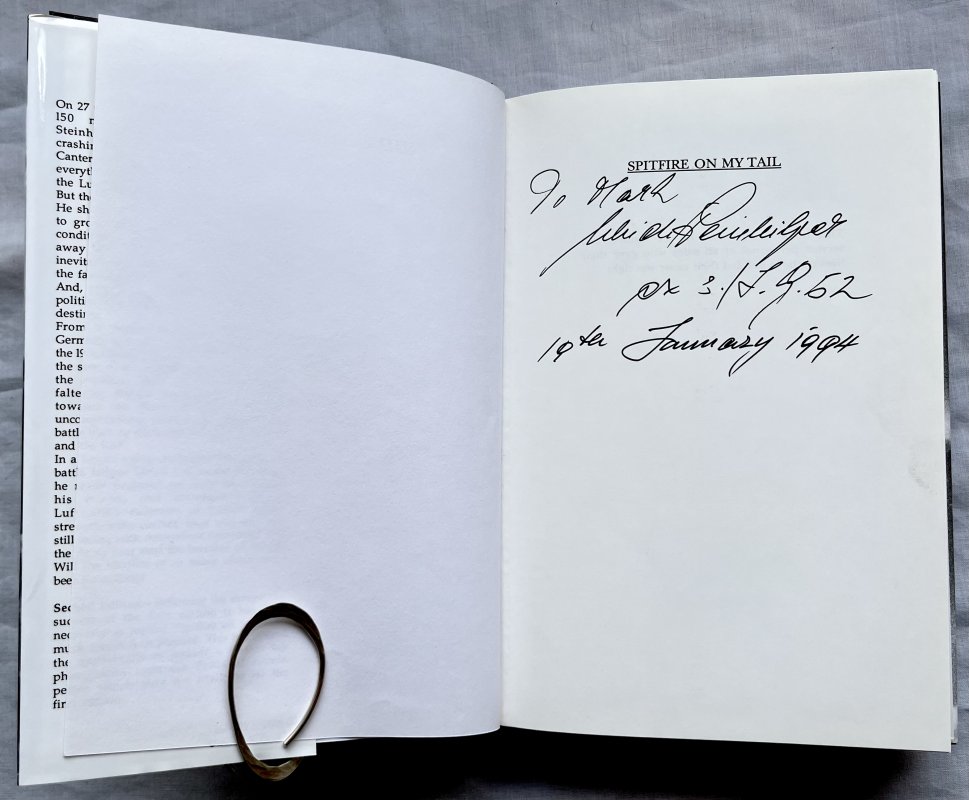 On 27
150
Steinh
crashi
Canter
everyt
the Lu
But th
He sh
to gr
condit
away
inevit
the fa
And,
politi
destin
From
Germ
the 19
the s
the
falte
towa
unco
battl
and
In a
batt
he
his
Luf
stre
still
the
Wil
bee
Sec
suc
nec
mu
the
ph
pe
fir
SPITFIRE ON MY TAIL
To Mark
Ulrich Steinhilper
ex 3./J.G.52
19ter January 1994